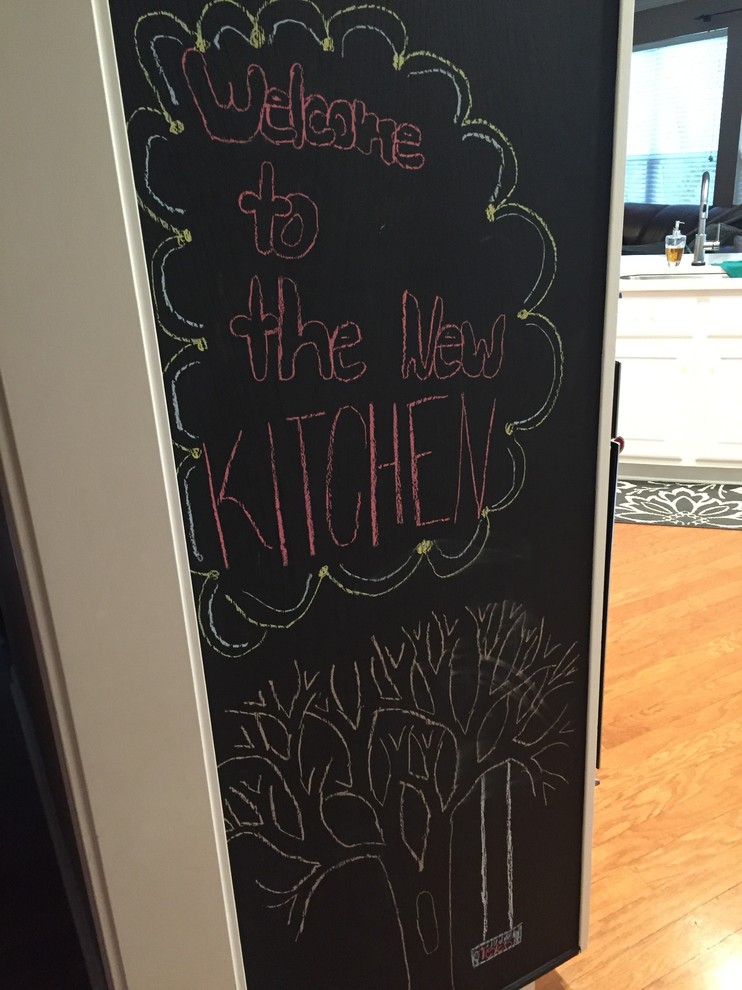 Welcome
to
the New
KITCHEN